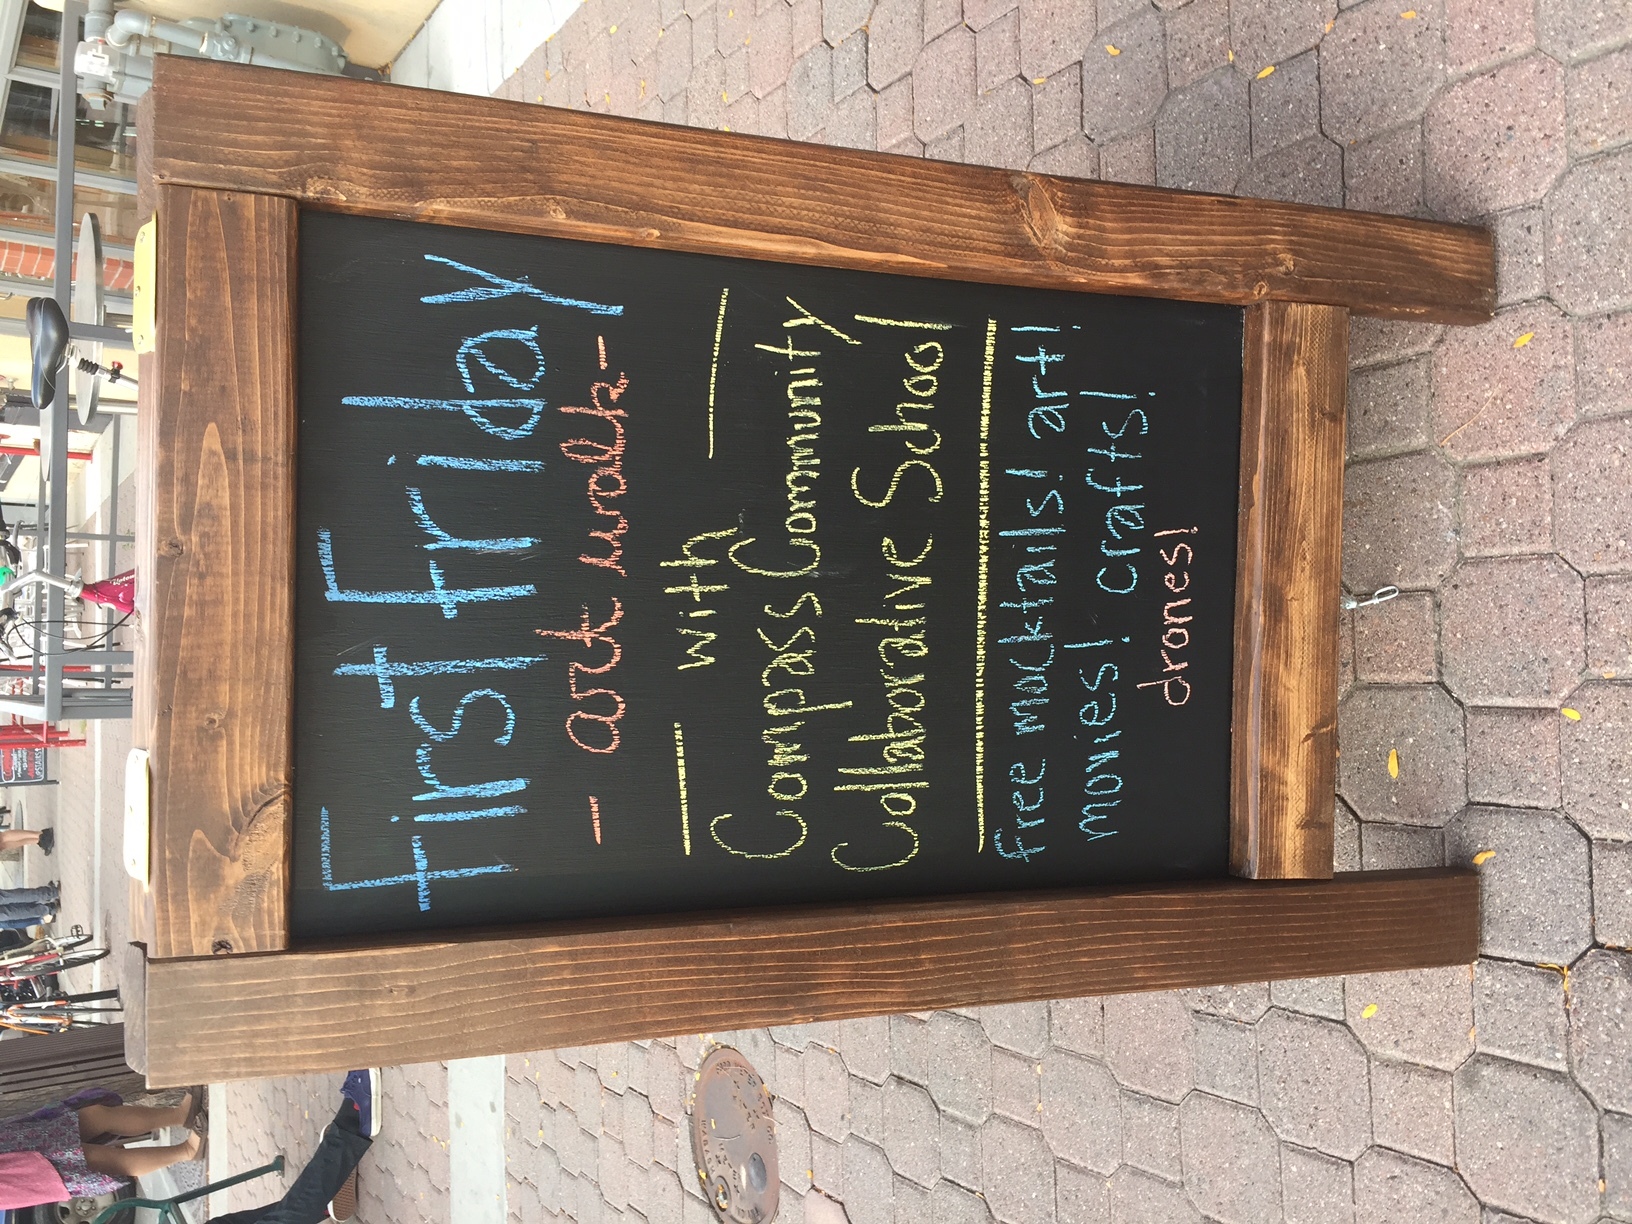 First Friday
- art walk -
with
Compass Community
Collaborative School
free mocktails! art!
movies! crafts!
drones!